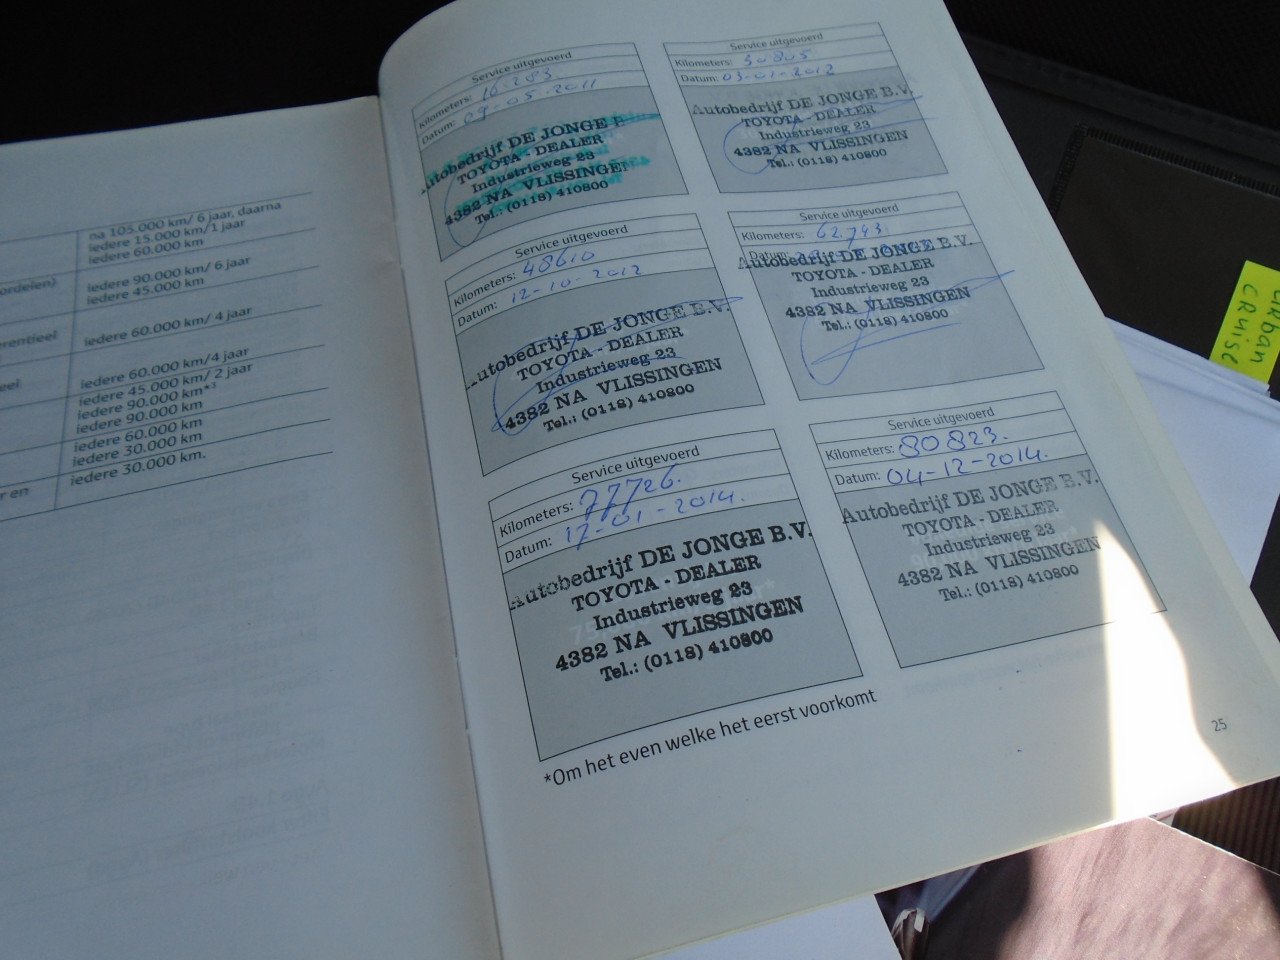 na 105.000 km/ 6 jaar, daarna
iedere 15.000 km/1 jaar
iedere 60.000 km
ordelen)
iedere 90.000 km/ 6 jaar
iedere 45.000 km
rentieel
iedere 60.000 km/ 4 jaar
eel
iedere 60.000 km/4 jaar
iedere 45.000 km/ 2 jaar
iedere 90.000 km*³
iedere 90.000 km
iedere 60.000 km
iedere 30.000 km
r en
iedere 30.000 km.
Service uitgevoerd
Kilometers: 16.283.
Datum: 09-05-2011
Autobedrijf DE JONGE B.
TOYOTA - DEALER
Industrieweg 23
4382 NA VLISSINGEN
Tel.: (0118) 410800
Service uitgevoerd
Kilometers: 30805.
Datum: 03-01-2012
Autobedrijf DE JONGE B.V.
TOYOTA - DEALER
Industrieweg 23
4382 NA VLISSINGEN
Tel.: (0118) 410800
Service uitgevoerd
Kilometers: 48610
Datum: 12-10-2012
Autobedrijf DE JONGE B.V.
TOYOTA - DEALER
Industrieweg 23
4382 NA VLISSINGEN
Tel.: (0118) 410800
Service uitgevoerd
Kilometers: 62.743
Datum:
Autobedrijf DE JONGE B.V.
TOYOTA - DEALER
Industrieweg 23
4382 NA VLISSINGEN
Tel.: (0118) 410800
Service uitgevoerd
Kilometers: 77726.
Datum: 17-01-2014.
Autobedrijf DE JONGE B.V.
TOYOTA - DEALER
Industrieweg 23
4382 NA VLISSINGEN
Tel.: (0118) 410800
Service uitgevoerd
Kilometers: 80823.
Datum: 04-12-2014.
Autobedrijf DE JONGE B.V.
TOYOTA - DEALER
Industrieweg 23
4382 NA VLISSINGEN
Tel.: (0118) 410800
*Om het even welke het eerst voorkomt
25
CRUISE